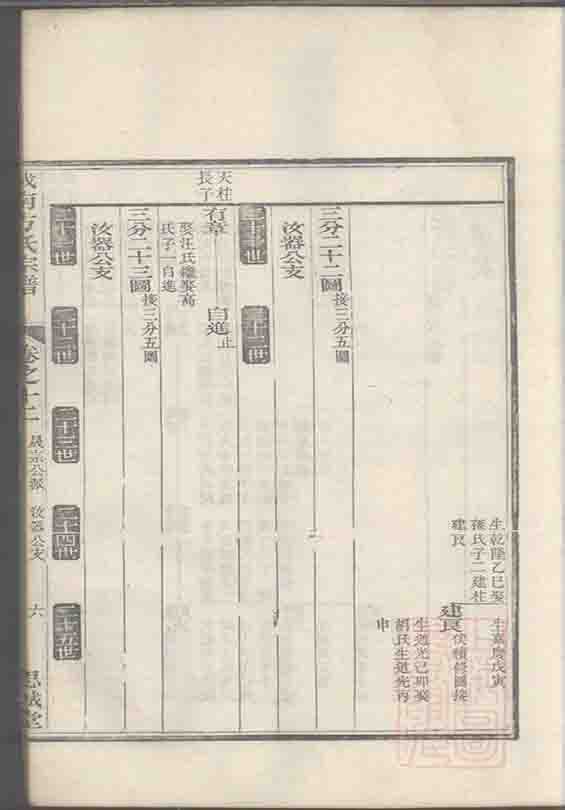 生嘉慶戊寅
生乾隆乙巳娶
孫氏子二建柱
建良
建良
俟續修圖接
生道光己卯娶
胡氏生道光丙
申
三分二十二圖接三分五圖
汝器公支
三十二世
天柱
長子
有章
自進止
娶汪氏繼娶高
氏子一自進
三分二十三圖接三分五圖
汝器公支
三十二世
三十三世
三十四世
三十五世
宗譜
卷之十二
汝器公支
六
思誠堂